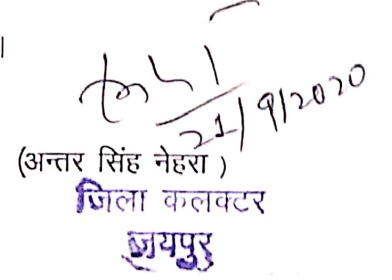 21/9/2020
(अन्तर सिंह नेहरा)
जिला कलक्टर
जयपुर